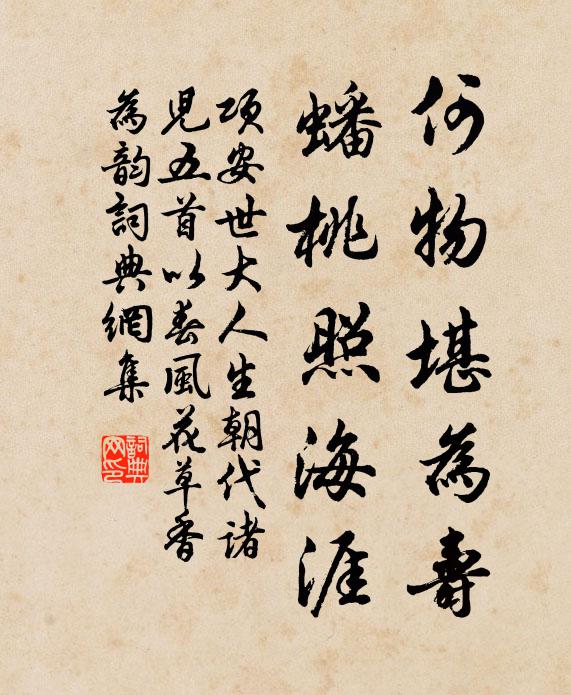 何物堪為壽
蟠桃照海涯
項安世大人生朝代諸
児五首以春風花草香
為韵詞典網集
詞典
网印